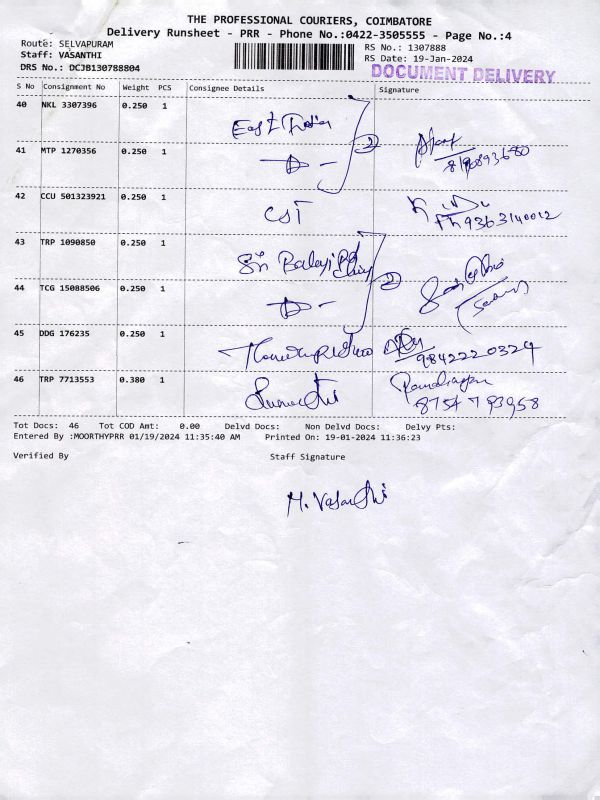 THE PROFESSIONAL COURIERS, COIMBATORE
Delivery Runsheet - PRR - Phone No.:0422-3505555 - Page No.:4
Route: SELVAPURAM
RS No.: 1307888
Staff: VASANTHI
RS Date: 19-Jan-2024
DRS No.: DCJB130788804
DOCUMENT DELIVERY
S No Consignment No Weight PCS Consignee Details Signature
40 NKL 3307396 0.250 1 East India
41 MTP 1270356 0.250 1 2
42 CCU 501323921 0.250 1 CST
Ph 9363140012
43 TRP 1090850 0.250 1 Sri Balaji
44 TCG 15088506 0.250 1 2
45 DDG 176235 0.250 1
9842220324
46 TRP 7713553 0.380 1
8754793958
Tot Docs: 46 Tot COD Amt: 0.00 Delvd Docs: Non Delvd Docs: Delvy Pts:
Entered By :MOORTHYPRR 01/19/2024 11:35:40 AM Printed On: 19-01-2024 11:36:23
Verified By Staff Signature
M. Vasanthi